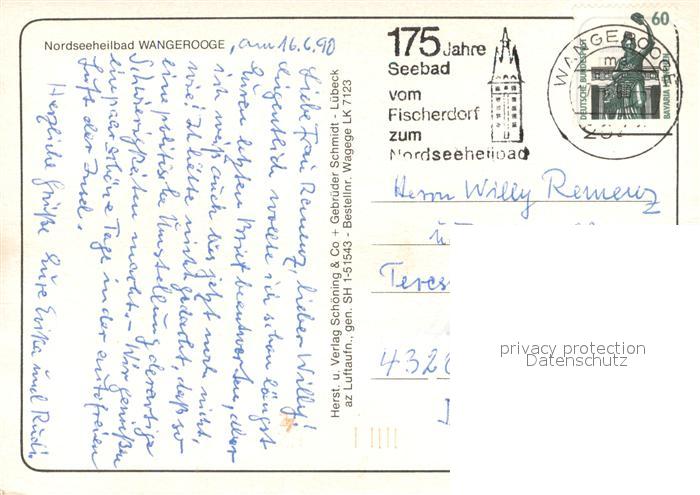 Nordseeheilbad WANGEROOGE, am 16.6.90
Liebe Frau Remenz, lieber Willy!
Eigentlich wollte ich schon längst
Euren letzten Brief beantworten, aber
ich weiß auch bis jetzt noch nicht,
wie! Ich hätte nicht gedacht, daß so
eine politische Umstellung derartige
Schwierigkeiten macht. - Wir genießen
ein paar schöne Tage in der autofreien
Luft der Insel.
Herzliche Grüße Eure Erika und Rudi.
Herst. u. Verlag Schöning & Co + Gebrüder Schmidt - Lübeck
az Luftaufn., gen. SH 1-51543 - Bestellnr. Wagege LK 7123
175 Jahre
Seebad
vom
Fischerdorf
zum
Nordseeheilbad
WANGEROOGE
60
DEUTSCHE BUNDESPOST
BAVARIA MÜNCHEN
Herrn Willy Remenz
Teres
432
privacy protection
Datenschutz